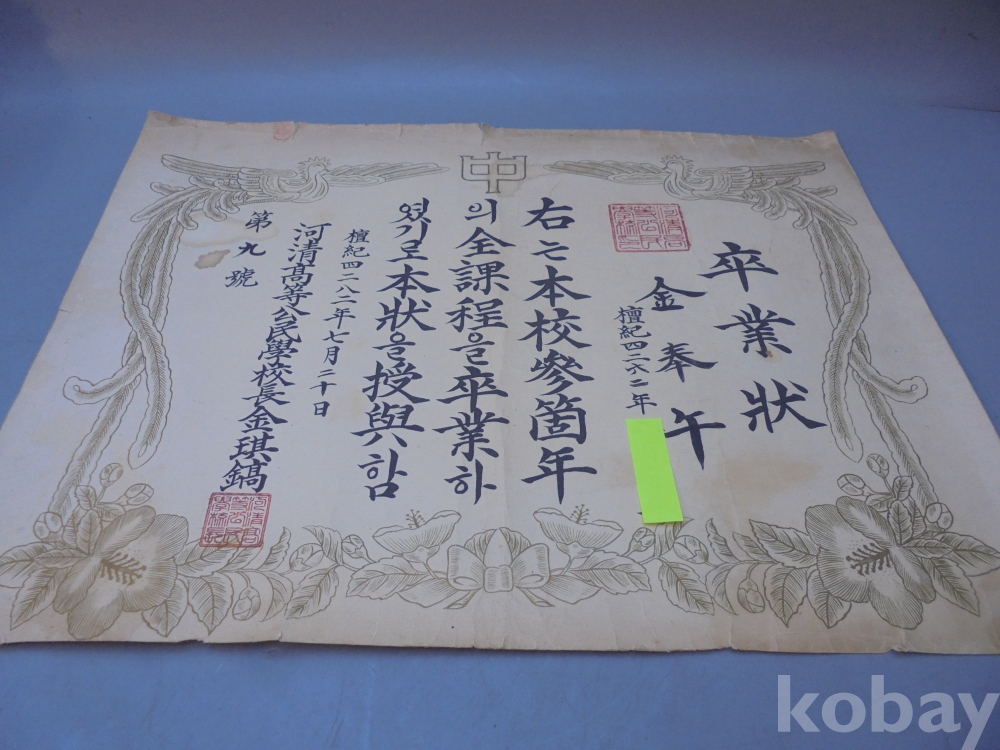 卒業狀
金奉午
檀紀四二六二年
右는本校參箇年
의全課程을卒業하
엿기로本狀을授與함
檀紀四二八二年七月二十日
河清高等公民學校長金琪鎬
第九號
中
kobay